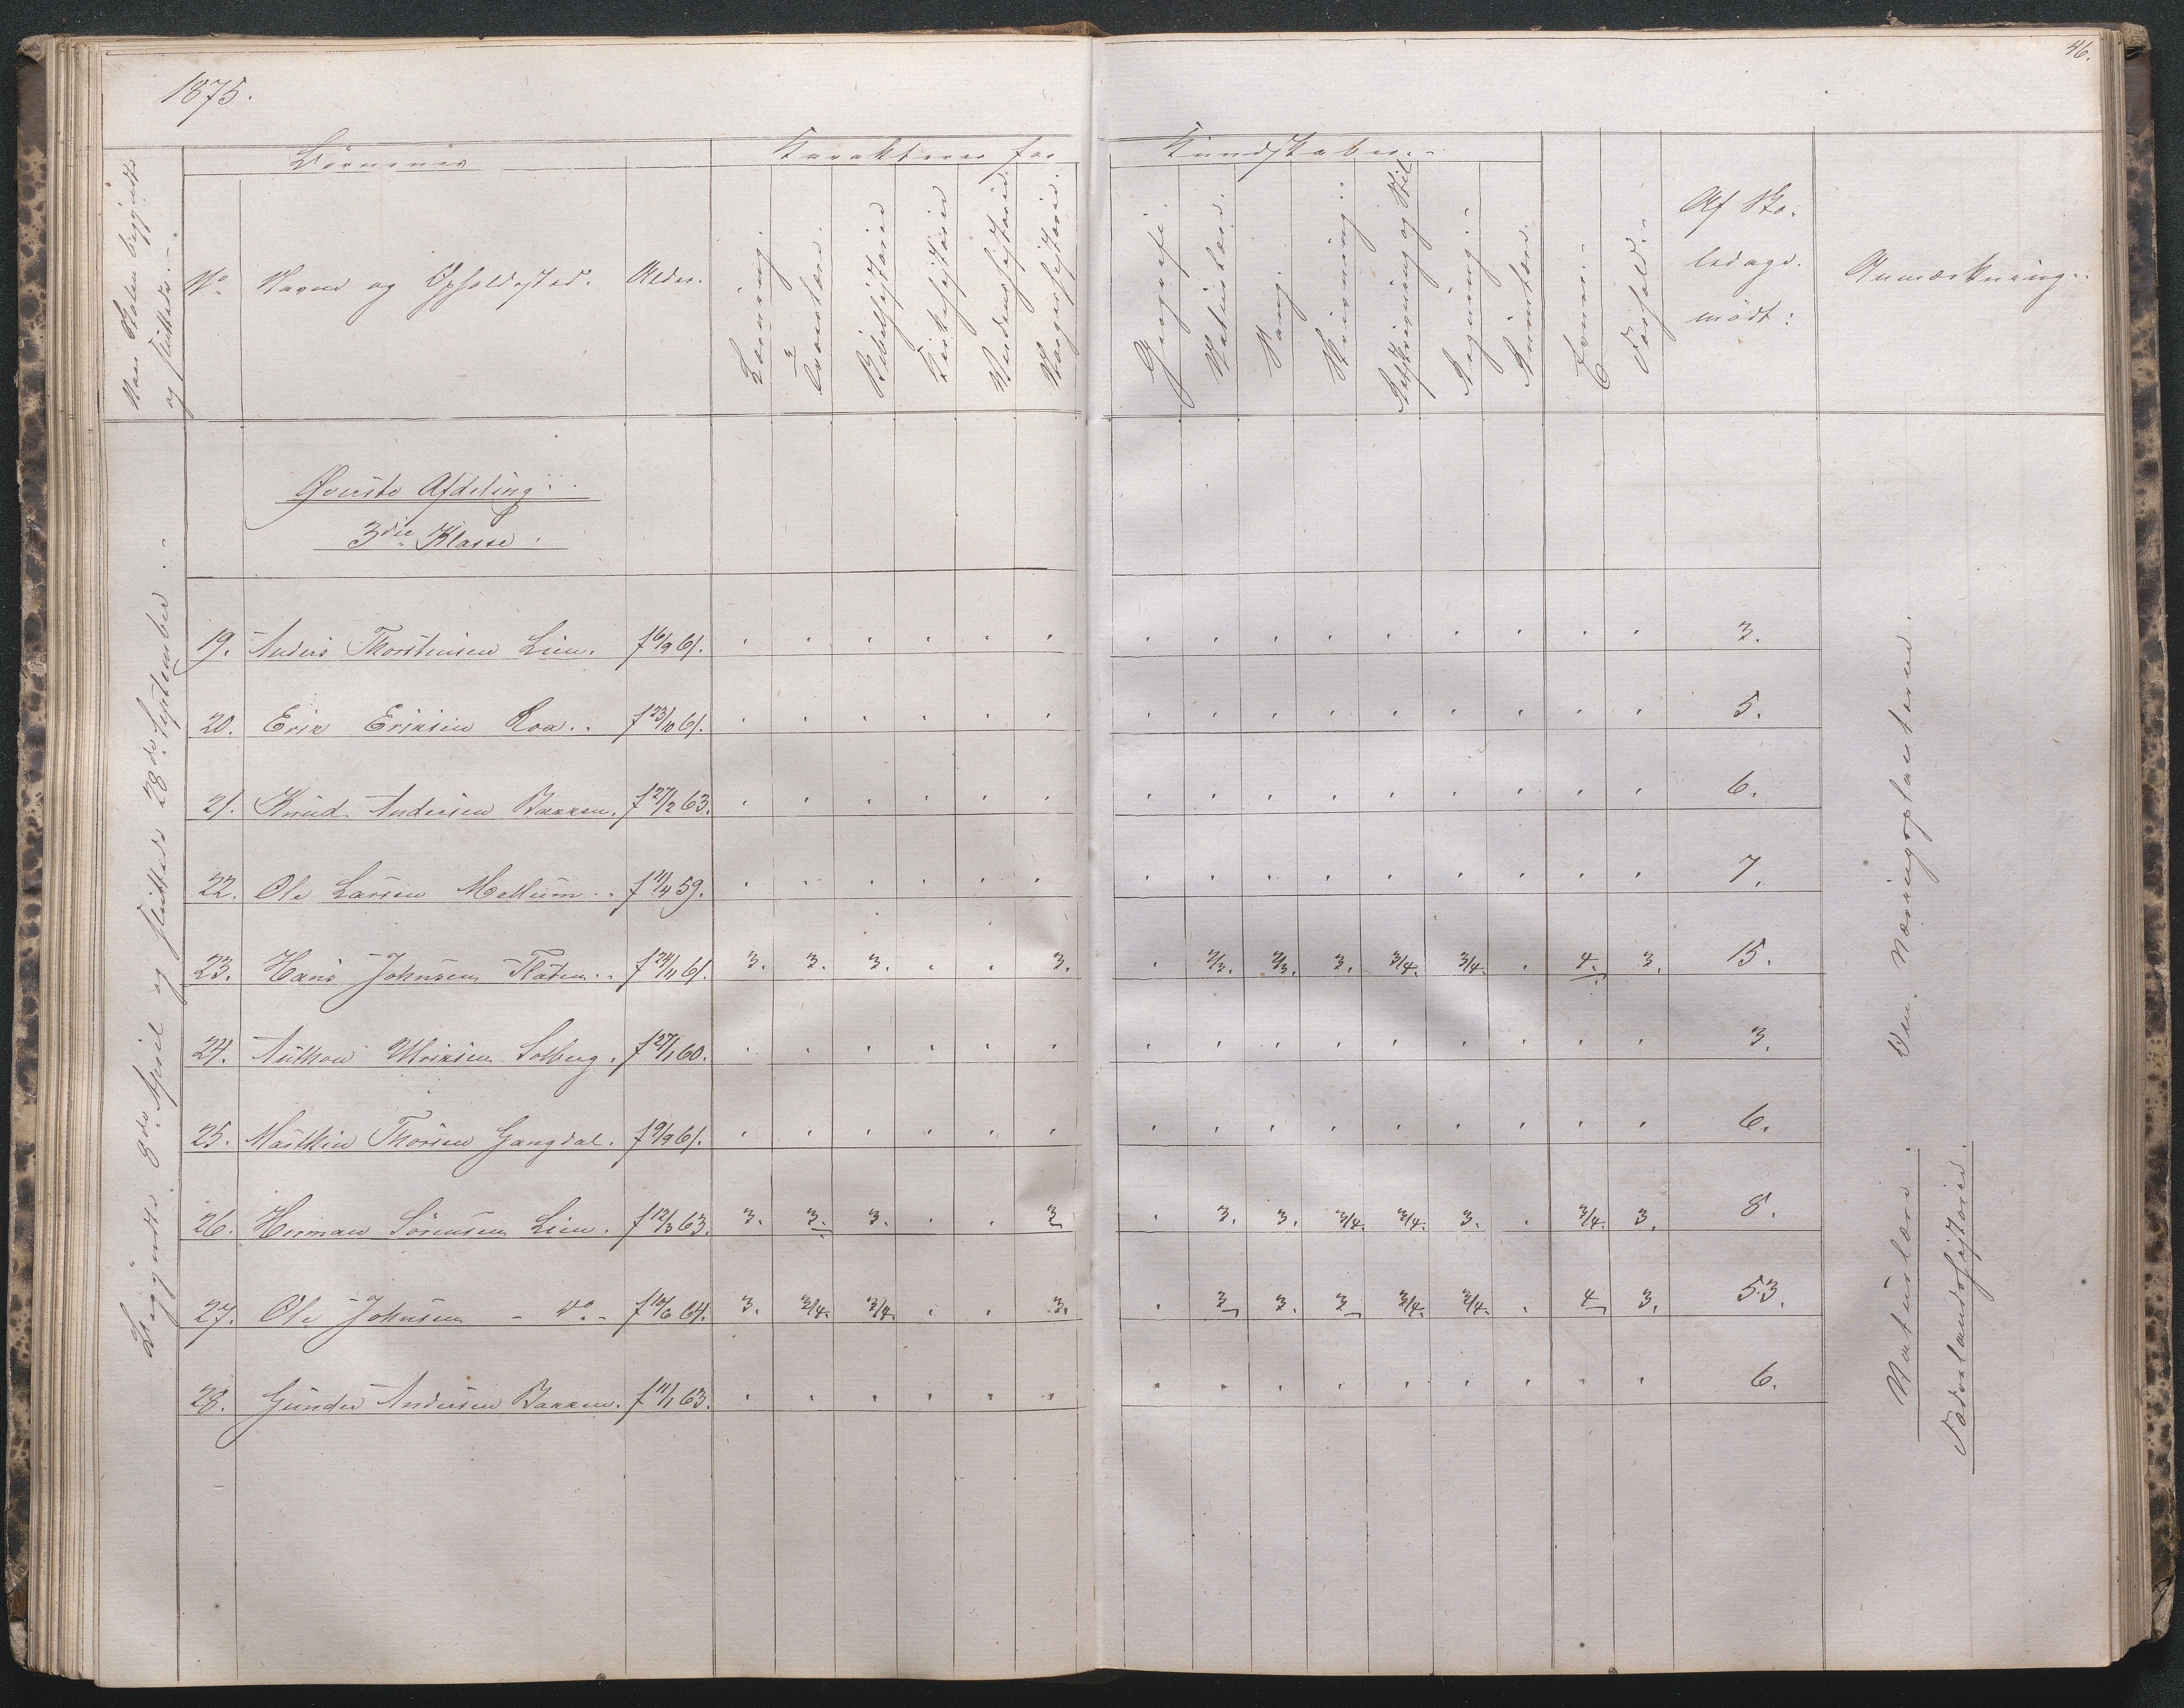 46.
1875.
Naar Skolen begyndte og sluttede.
Børnenes
Karakterer for Kundskaber.
No Navne og Opholdssted. Alder. Læsning. Troeslære. Bibelhistorie Kirkehistorie Verdenshistorie Norgeshistorie. Geografi. Naturlære. Sang. Skrivning. Retskrivning og Stil Regning. Evner. Forhold. Af Sko- Anmærkning.
ledage.
mødt:
Øverste Afdeling.
3die Klasse.
19. Anders Thorstensen Lien. f 6/9 61. " " " " " " " " " " " " " " " 3.
20. Erik Eriksen Roa. f 23/10 61. " " " " " " " " " " " " " " " 5.
21. Knud Andersen Bakken. f 27/2 63. " " " " " " " " " " " " " " " 6.
22. Ole Larsen Mellum. f 11/4 59. " " " " " " " " " " " " " " " 7.
23. Hans Johnsen Flaten. f 24/11 61. 3. 3. 3. " " 3. " 2/3. 2/3. 3. 3/4. 3/4. " 4. 3. 15.
24. Anthon Ulriksen Solberg. f 27/1 60. " " " " " " " " " " " " " " " 3.
25. Mathias Thorsen Gangdal. f 9/9 61. " " " " " " " " " " " " " " " 6.
26. Herman Sörensen Lien. f 12/3 63. 3. 3. 3. " " 3 " 3. 3. 3/4. 3/4. 3. " 3/4. 3. 8.
27. Ole Johnsen - do - f 10/6 64. 3. 3/4. 3/4. " " 3. " 3 3. 3 3/4. 3/4. " 4 3. 53.
28. Gunder Andersen Bakken. f 11/1 63. " " " " " " " " " " " " " " " 6.
Begyndte 8de April og sluttede 28de September.
Naturlære. Om Næringsplanterne.
Fædrelandshistorie.